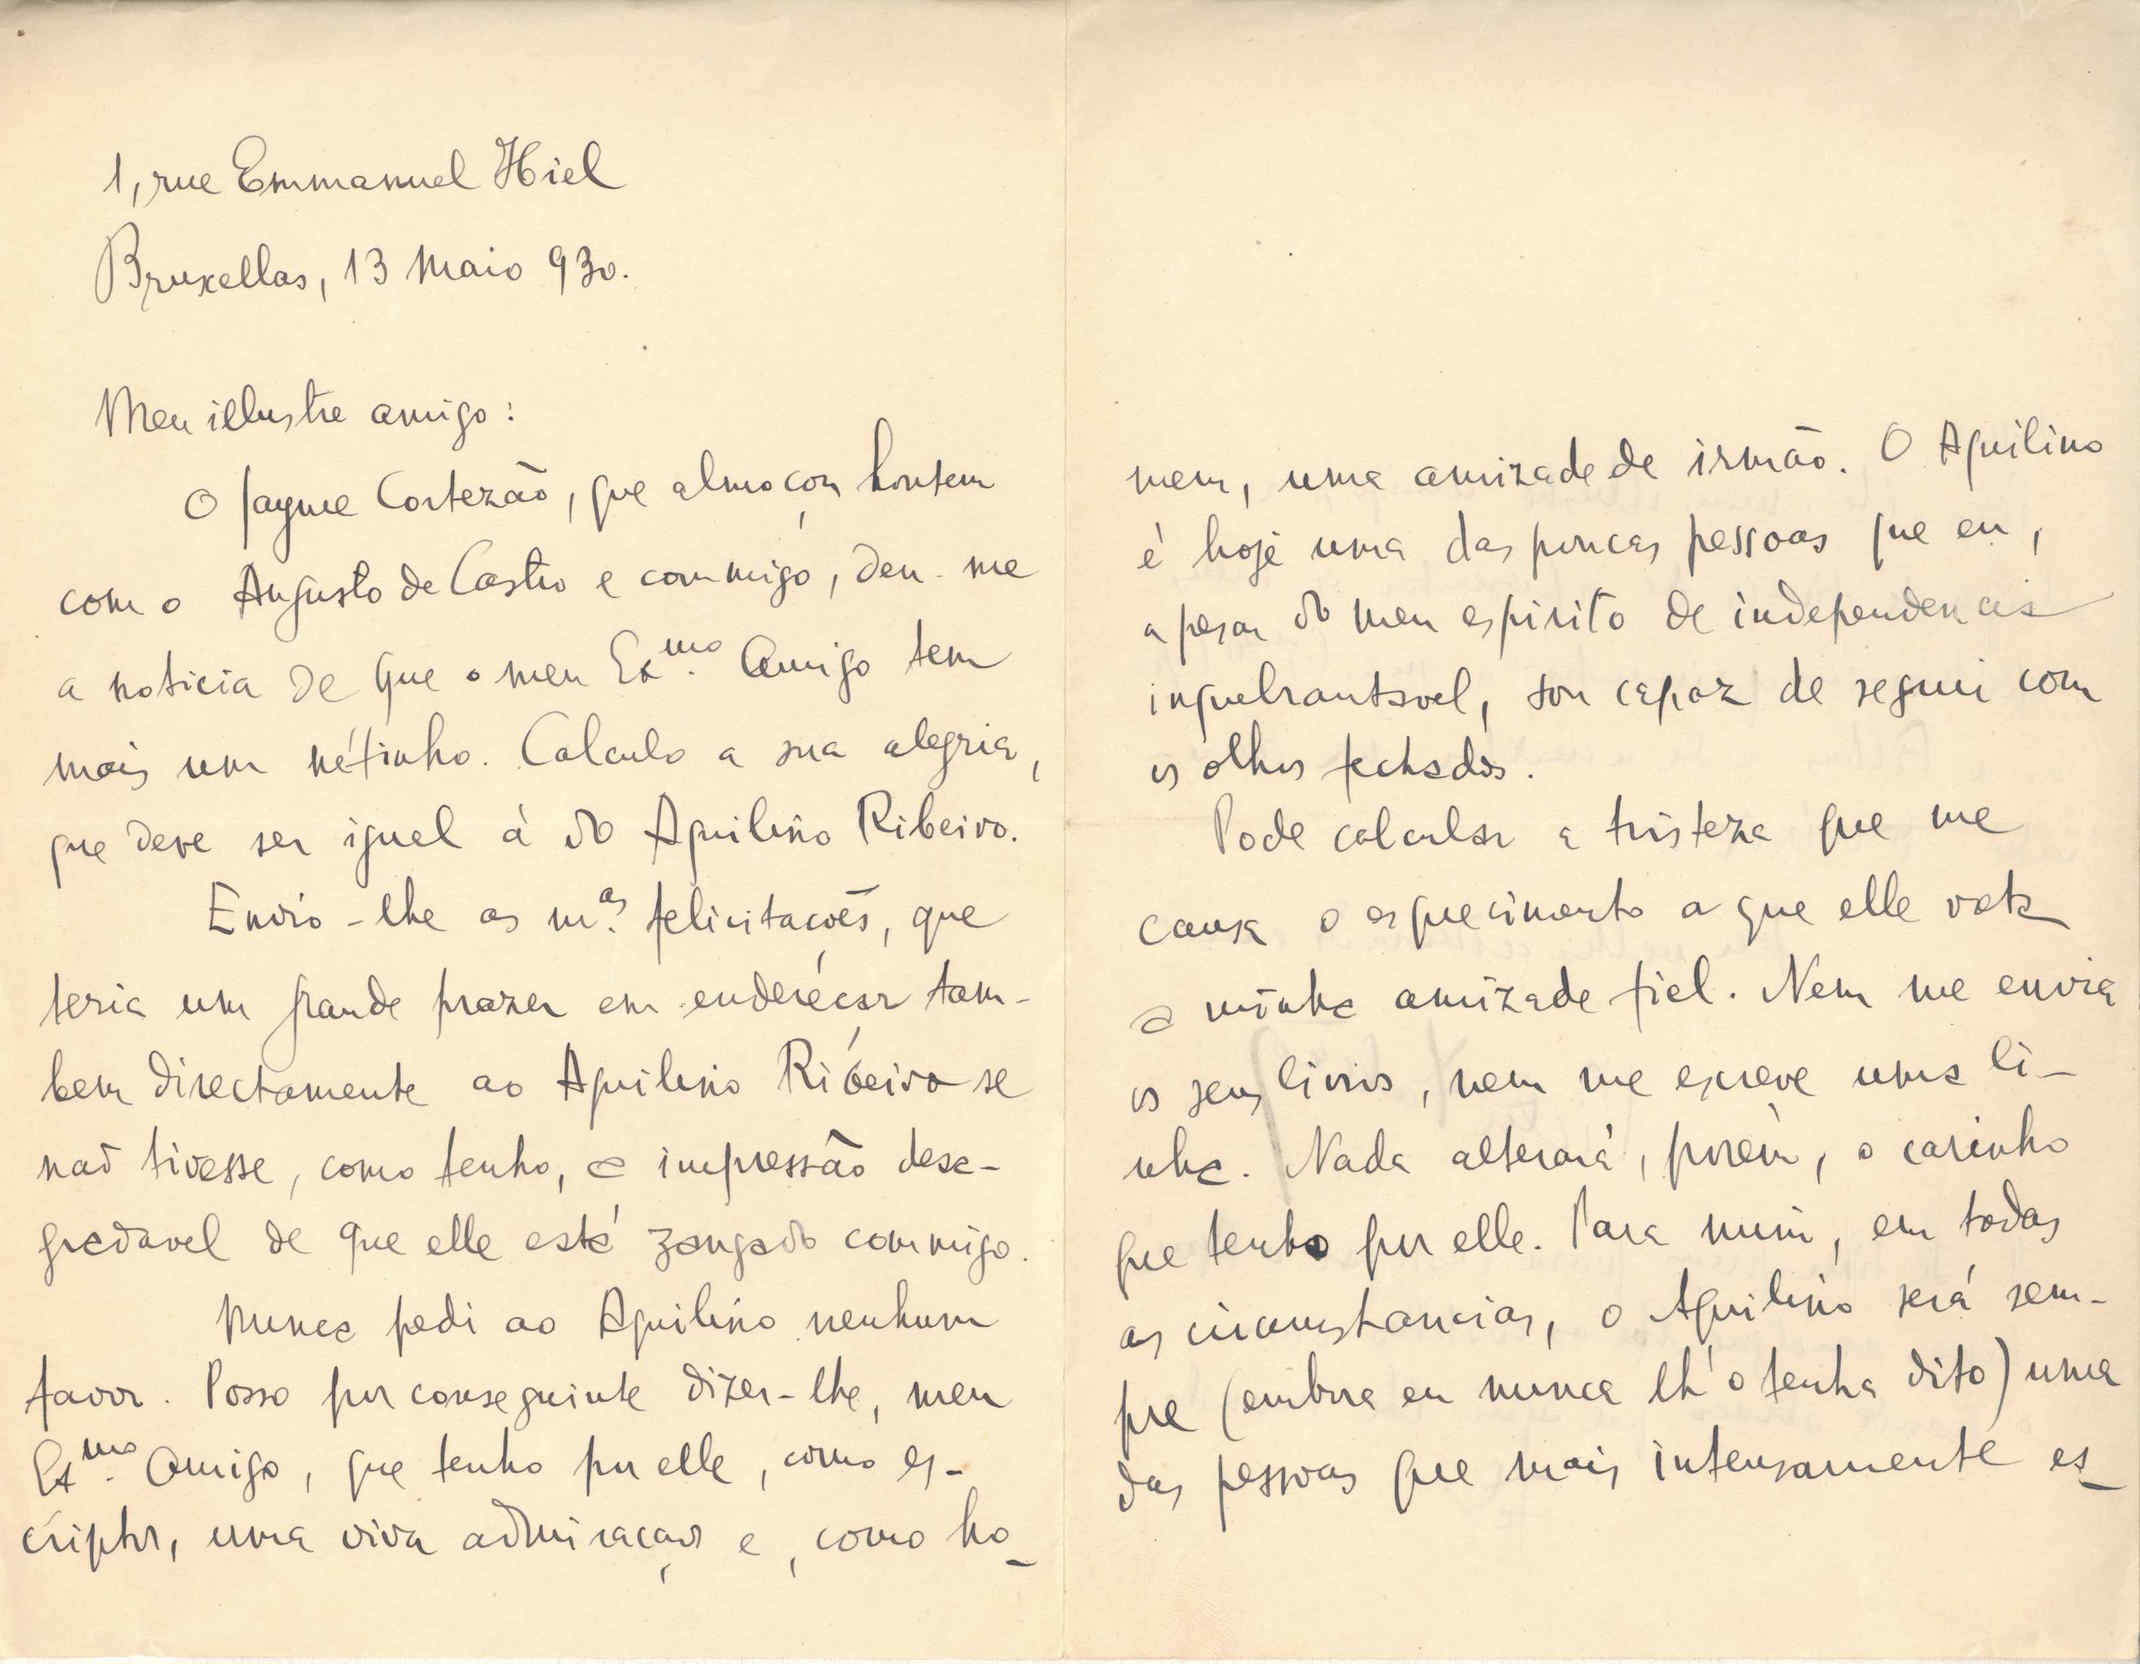 1, rue Emmanuel Hiel
Bruxellas, 13 Maio 930.
Meu illustre amigo:
O Jayme Cortezão, que almoçou hontem
com o Augusto de Castro e commigo, deu-me
a noticia de que o meu Exmo. Amigo tem
mais um nétinho. Calculo a sua alegria,
que deve ser igual á do Aquilino Ribeiro.
Envio-lhe as m.as felicitações, que
teria um grande prazer em endereçar tam-
bem directamente ao Aquilino Ribeiro se
não tivesse, como tenho, a impressão desa-
gradavel de que elle está zangado commigo.
Nunca pedi ao Aquilino nenhum
favor. Posso por conseguinte dizer-lhe, meu
Exmo. Amigo, que tenho por elle, como es-
criptor, uma viva admiração e, como ho-
mem, uma amizade de irmão. O Aquilino
é hoje uma das poucas pessoas que eu,
apesar do meu espirito de independencia
inquebrantavel, sou capaz de seguir com
os olhos fechados.
Pode calcular a tristeza que me
causa o esquecimento a que elle vota
a minha amizade fiel. Nem me envia
os seus livros, nem me escreve uma li-
nha. Nada alterará, porém, o carinho
que tenho por elle. Para mim, em todas
as circumstancias, o Aquilino será sem-
pre (embora eu nunca lh'o tenha dito) uma
das pessoas que mais intensamente es-